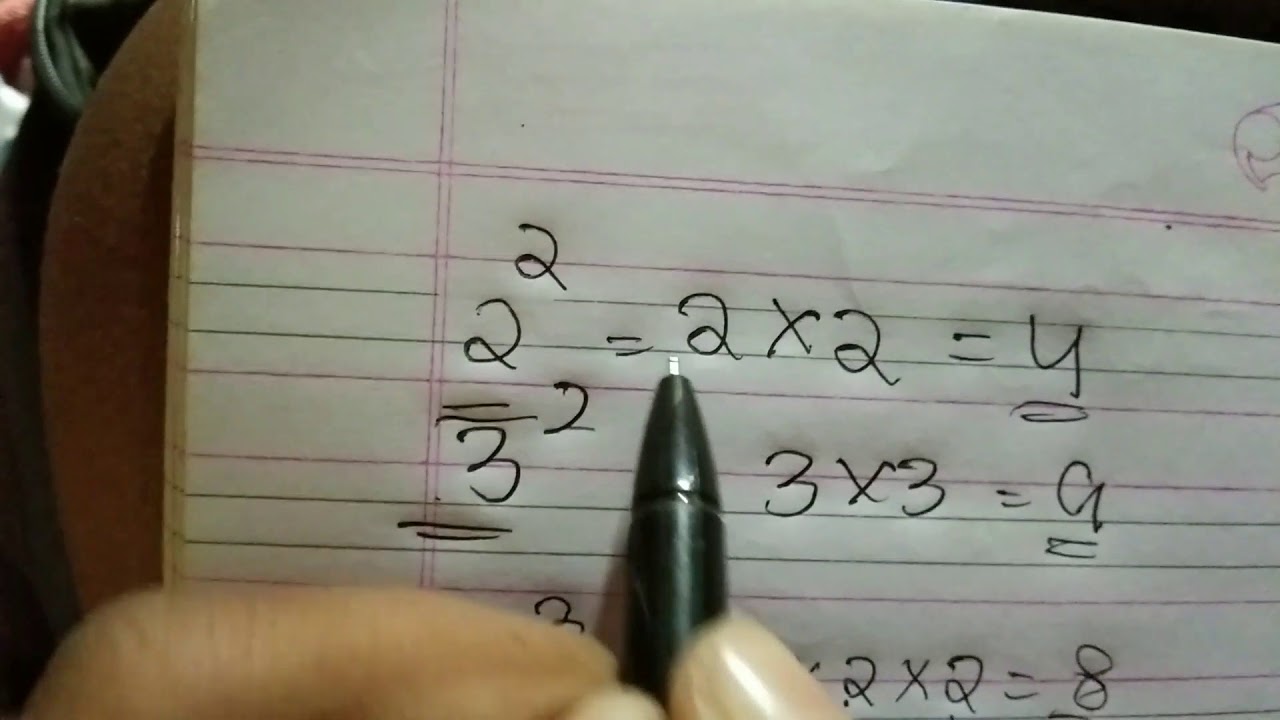 2² = 2 × 2 = 4
3² 3 × 3 = 9
3 2 × 2 = 8